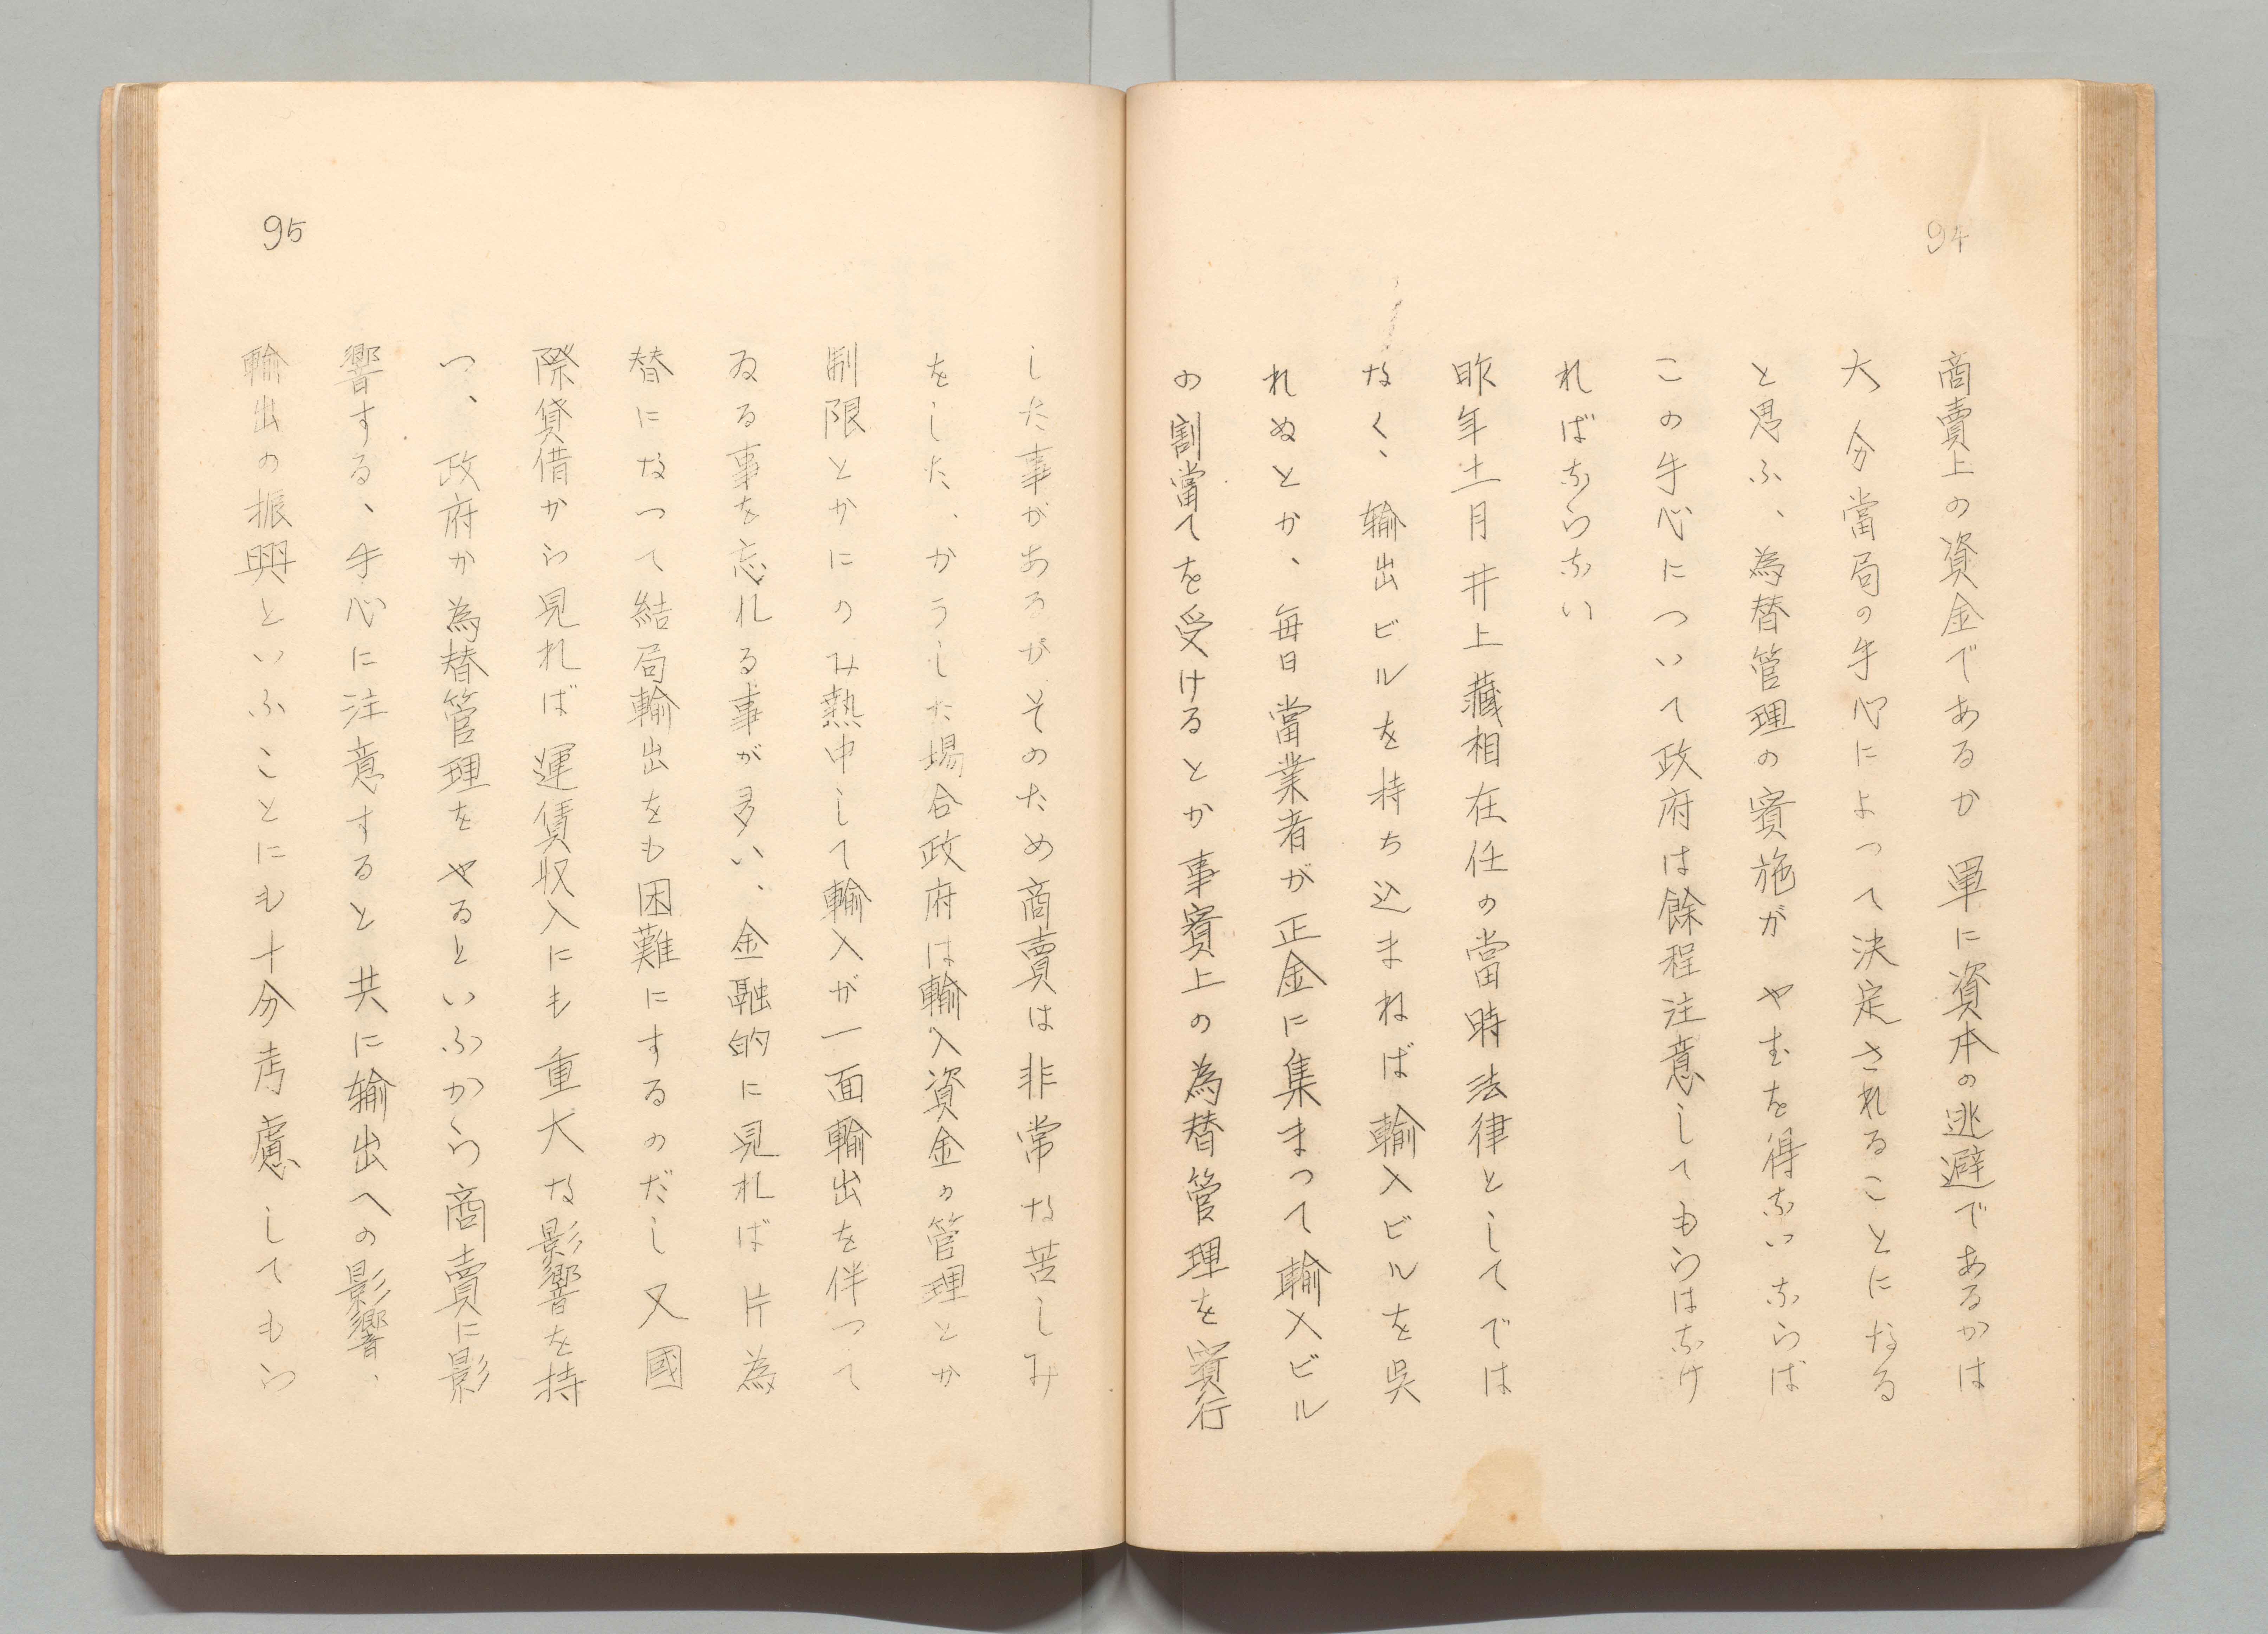 94
商賣上の資金であるか 単に資本の逃避であるかは
大分當局の手心によつて決定されることになる
と思ふ、為替管理の實施が やむを得ないならば
この手心について政府は餘程注意してもらはなけ
ればならない
昨年十一月井上藏相在任の當時法律としてでは
なく、輸出ビルを持ち込まねば輸入ビルを呉
れぬとか、毎日當業者が正金に集まつて輸入ビル
の割當てを受けるとか事實上の為替管理を實行
した事があるがそのため商賣は非常な苦しみ
をした、かうした場合政府は輸入資金の管理とか
制限とかにのみ熱中して輸入が一面輸出を伴つて
ゐる事を忘れる事が多い、金融的に見れば片為
替になつて結局輸出をも困難にするのだし又國
際貸借から見れば運賃収入にも重大な影響を持
つ、政府か為替管理をやるといふから商賣に影
響する、手心に注意すると共に輸出への影響、
輸出の振興といふことにも十分考慮してもら
95